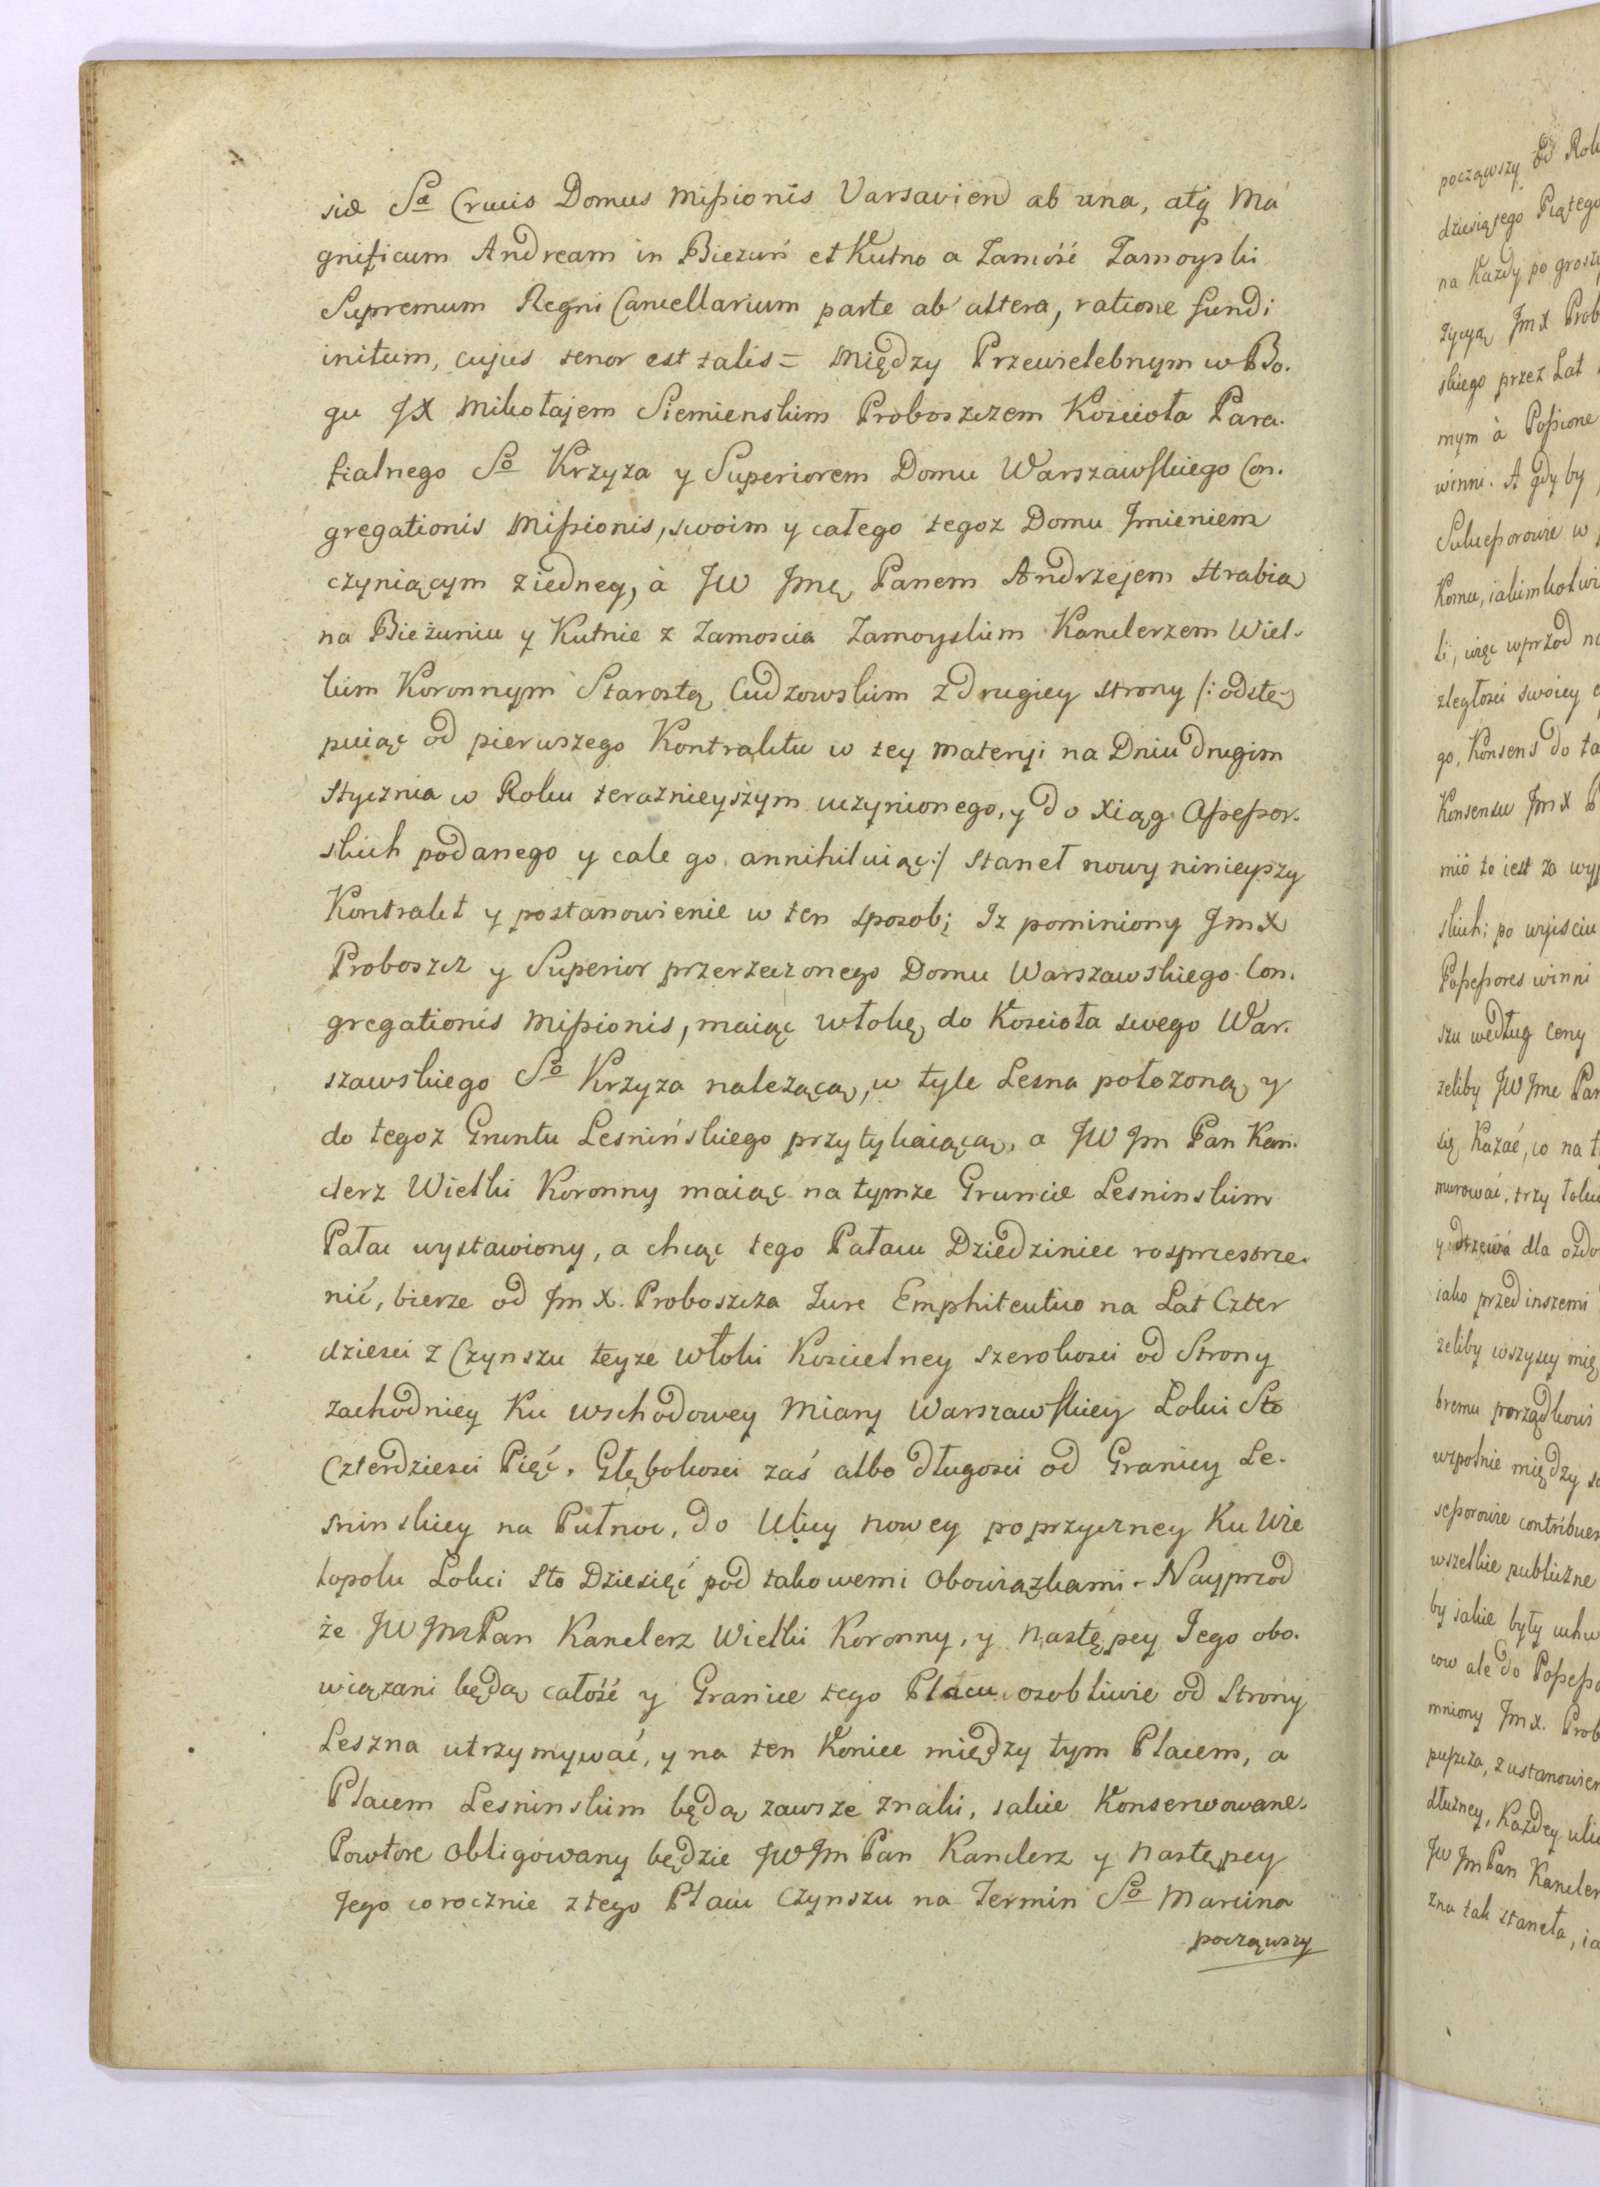 siæ Sæ Crucis Domus Missionis Varsavien ab una, atq Ma
gnificum Andream in Biezuń et Kutno a Zamość Zamoyski
Supremum Regni Cancellarium parte ab altera, ratione fundi
initum, cujus tenor est talis = Między Przewielebnym w Bo.
gu JX Mikołajem Siemienskim Proboszczem Kościoła Para.
fialnego So Krzyża y Superiorem Domu Warszawskiego Con.
gregationis Missionis, swoim y całego tegoz Domu Jmieniem
czyniącym z iedney, à JW Jmę Panem Andrzejem Hrabią
na Bieżuniu y Kutnie z Zamoscia Zamoyskim Kanclerzem Wiel.
kim Koronnym Starostą Cudzowskim z drugiey strony /: odstę
puiąc od pierwszego Kontraktu w tey materyi na Dniu drugim
Stycznia w Roku teraznieyszym uczynionego, y do Xiąg Assessor.
skich podanego y cale go annihiluiąc :/ stanęł nowy ninieyszy
Kontrakt y postanowienie w ten sposob; Iz pominiony Jmx
Proboszcz y Superior przerzeczonego Domu Warszawskiego Con.
gregationis Missionis, maiąc włokę do Kościoła swego War.
szawskiego So Krzyza nalezącą, w tyle Lesna położoną y
do tegoz Gruntu Lesnińskiego przytykaiącą, a JW Jm Pan Kan.
clerz Wielki Koronny maiąc na tymze Gruncie Lesninskim
Pałac wystawiony, a chcąc tego Pałacu Dziedziniec rosprzestrze.
nić, bierze od Jm X. Proboszcza Jure Emphiteutico na Lat Czter
dziesci z Czynszu teyze włoki Koscielney szerokosci od Strony
zachodniey Ku wschodowey Miary Warszawskiey Łokci Sto
Czterdziesci Pięć. Głębokosci zaś albo długosci od Granicy Le.
sninskiey na Pułnoc, do Ulicy nowey poprzyczney Ku Wie
lopolu Łokci Sto Dziesięć pod takowemi Obowiązkami. Nayprzod
że JW JmPan Kanclerz Wielki Koronny, y następcy Jego obo.
wiązani będą całość y Granice tego Placu osobliwie od Strony
Leszna utrzymywać, y na ten Koniec między tym Placem, a
Placem Lesninskim będą zawsze znaki, iakie Konserwowane.
Powtore obligowany będzie JWJm Pan Kanclerz y następcy
Jego corocznie z tego Placu Czynszu na Termin So Marcina
począwszy
począwszy od Rok
dziesiątego Piątego
na Każdy po grosz
życyą Jmx Prob
skiego przez Lat
mym à Possione
winni. A gdy by
Sukcessorowie w
Komu, iakimkolwi
li, więc wprzod na
zległosci swoiey
go, Konsens do ta
Konsensu Jmx P
mió to iest za wy
skich; po wyiściu
Possessores winni
szu według ceny
żeliby JW Jmc Pan
się Kazać, co na t
murować, trzy łok
y drzewa dla ozdo
iako przed inszemi
żeliby wszyscy mię
bremu porządkowi
wspolnie między s
sessorowie contribuer
wszelkie publiczne
by iakie były uchw
cow ale do Possess
mniony Jmx. Prob
puszcza, z ustanowien
dłużney, Każdey uli
JW JmPan Kancler
zna tak stanęła, ia